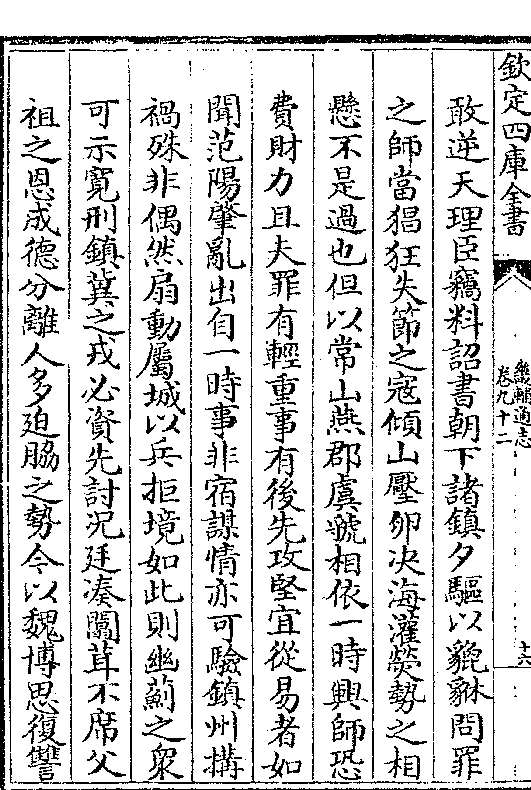 欽定四庫全書
畿輔通志
卷九十二
十六
敢逆天理臣竊料詔書朝下諸鎮夕驅以貔貅問罪
之師當猖狂失節之寇傾山壓卵決海灌熒勢之相
懸不是過也但以常山燕郡虞虢相依一時興師恐
費財力且夫罪有輕重事有後先攻堅宜從易者如
聞范陽肇亂出自一時事非宿謀情亦可驗鎮州搆
禍殊非偶然扇動屬城以兵拒境如此則幽薊之衆
可示寛刑鎮冀之戎必資先討况廷凑闒茸不席父
祖之恩成德分離人多迫脇之勢今以魏博思復讐